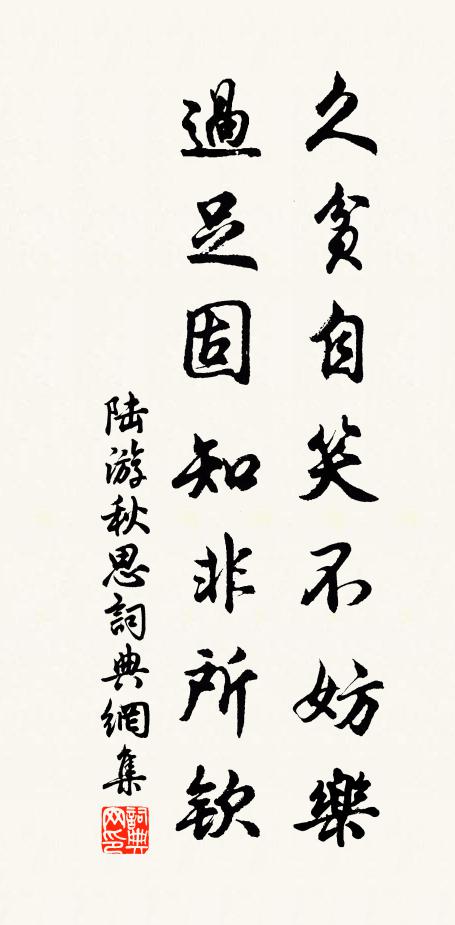 久貧自笑不妨樂
過足固知非所欽
陸游秋思詞典網集
詞典网印